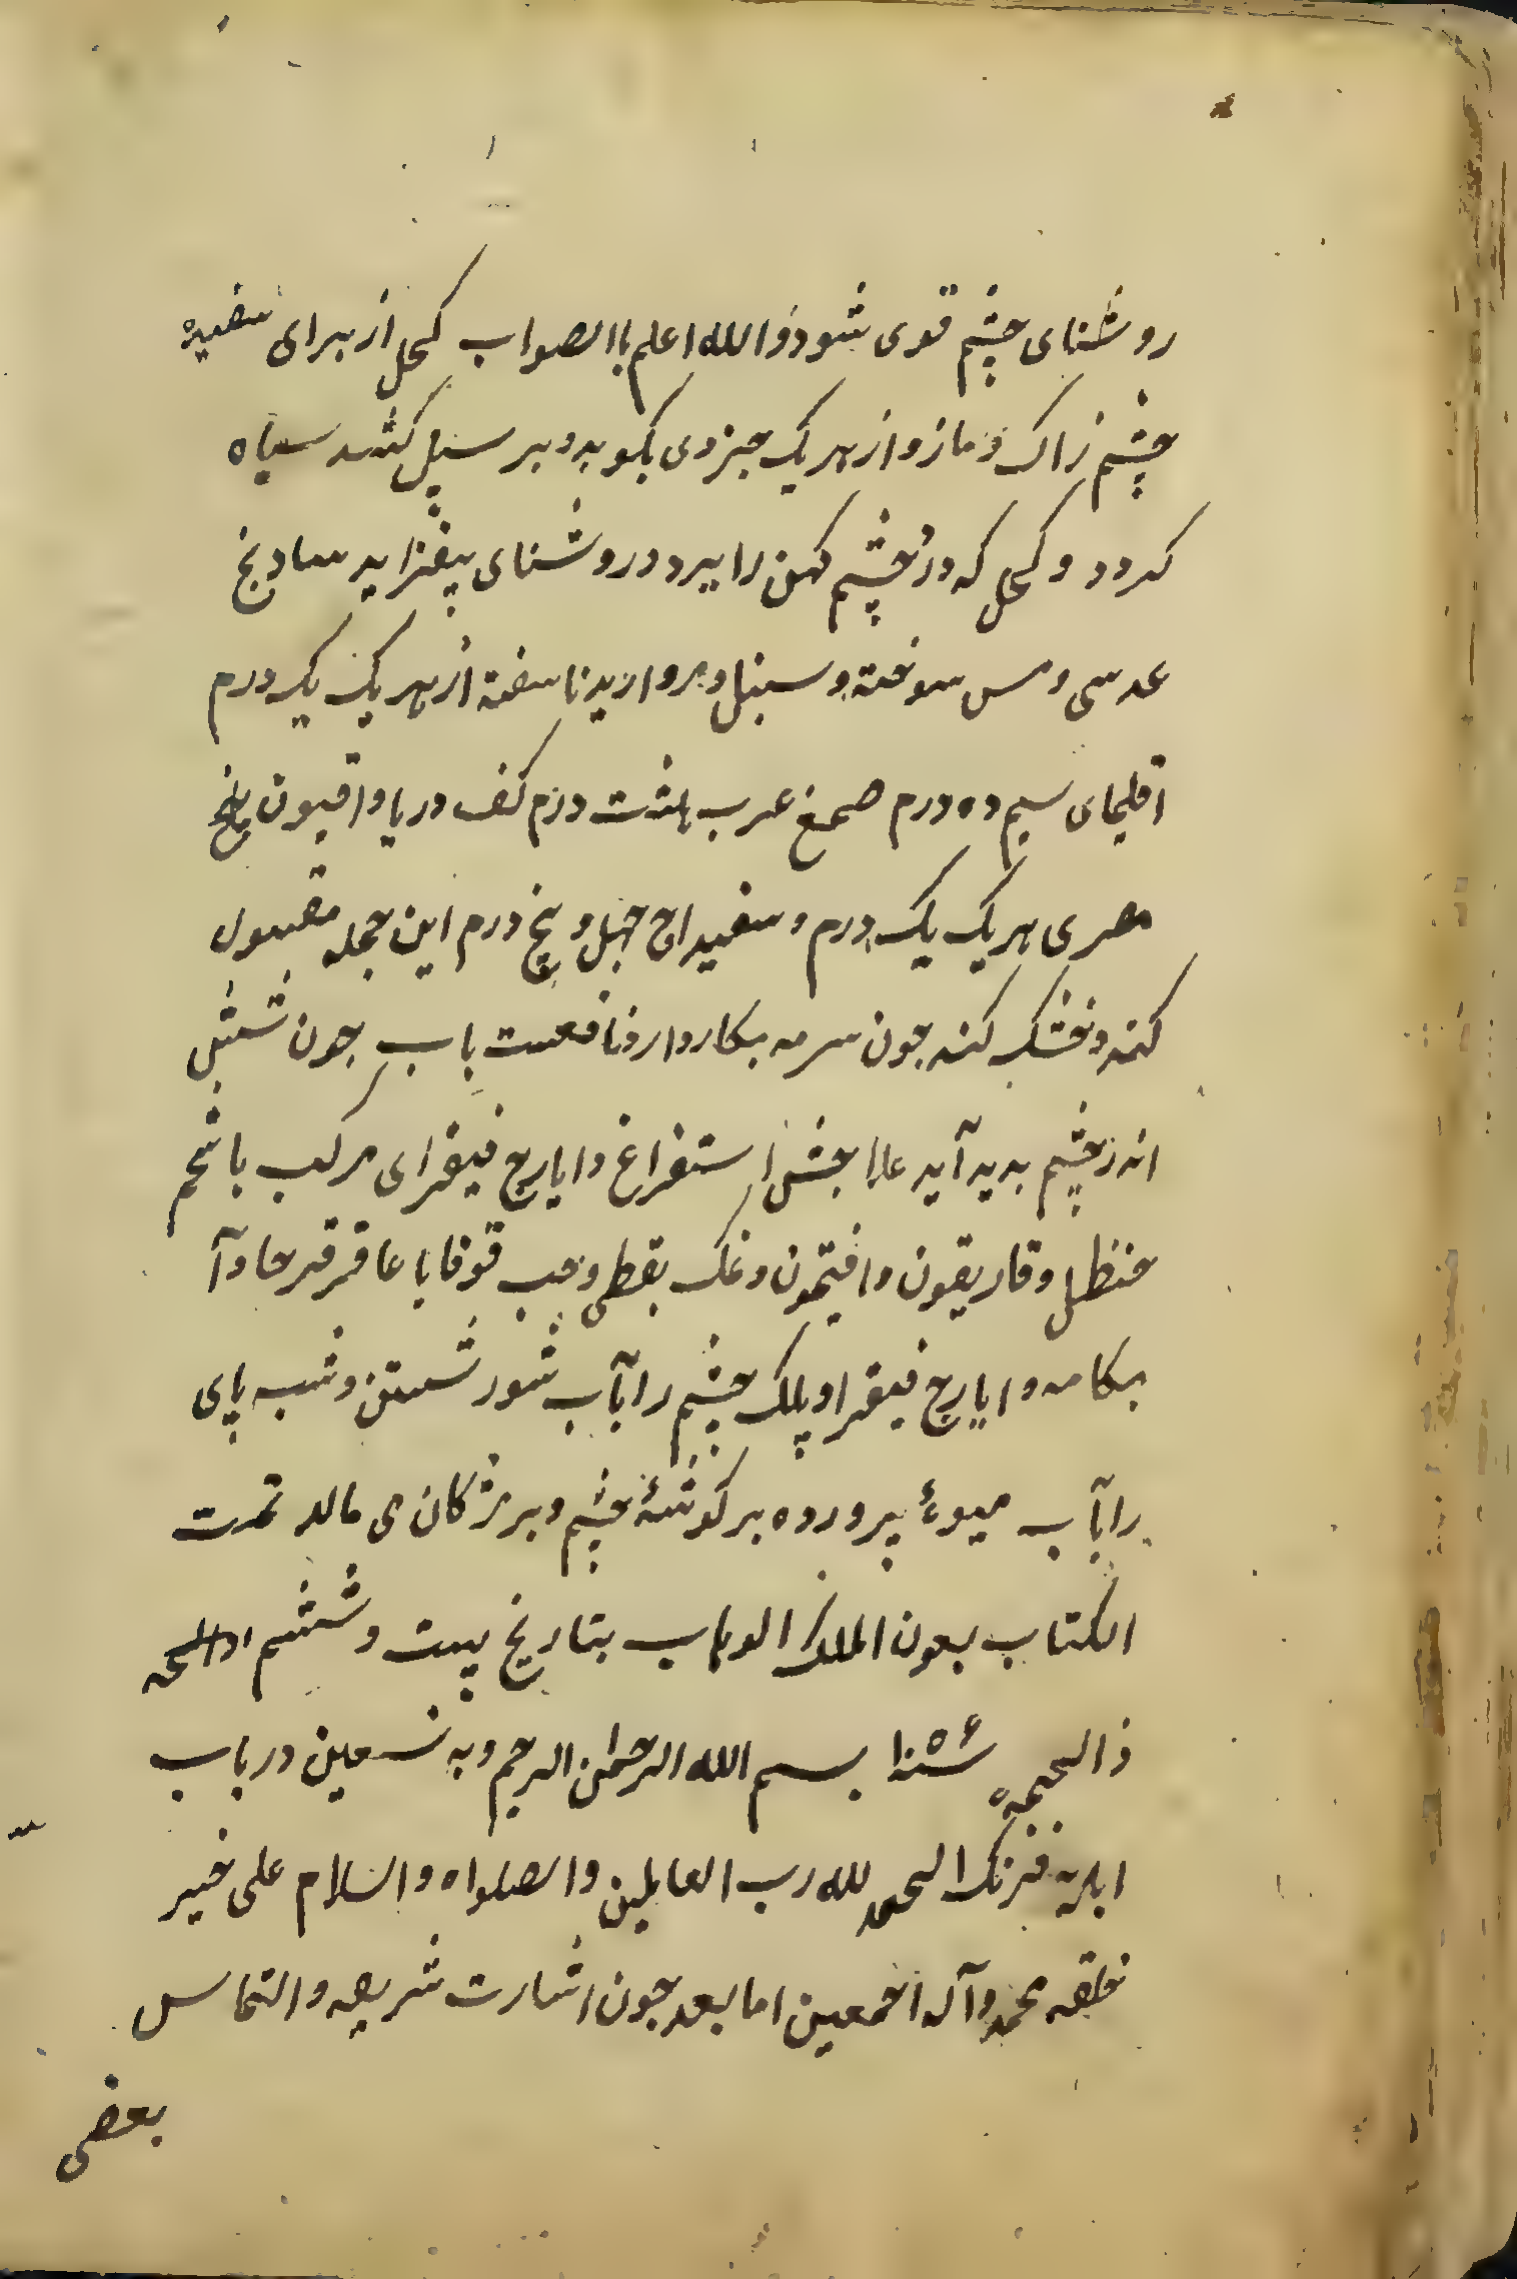 روشنای چشم قوی شود و الله اعلم باالصواب کحل از برای سفیده
چشم زاک و مازو از هر یک جزوی بکوبد و بر سبل کشد سیاه
کردد و کحل که درد چشم کهن را ببرد و روشنای بیفزاید سادنج
عدسی و مس سوخته و سنبل و مروارید ناسفته از هر یک یک درم
اقلیمای سیم ده درم صمغ عرب هشت درم کف دریا و افیون
مصری هر یک یک درم و سفیداج چهل و پنج درم این جمله مغسول
کنند و خشک کند چون سرمه بکار دارد نافعست باب چون شپش
اندر چشم بدید آید علاجش استفراغ و ایارج فیقرای مرکب با شحم
حنظل و قاریقون و افتیمون و نمک نفطی و حب قوقایا عاقرقرحا و آ
بکامه و ایارج فیقرا و پلک چشم را بآب شور شستن و شب یمانی
را بآب میوۀ پرورده بر کوشۀ چشم و بر مژکان می مالد تمت
الکتاب بعون الملک الوهاب بتاریخ بیست و ششم
ذالحجه بسم الله الرحمن الرحیم و به نستعین در باب
ابلۀ فرنک الحمد لله رب العالمین و الصلواه و السلام علی خیر
خلقه محمد و آله اجمعین اما بعد چون اشارت شریفه و التماس
بعضی